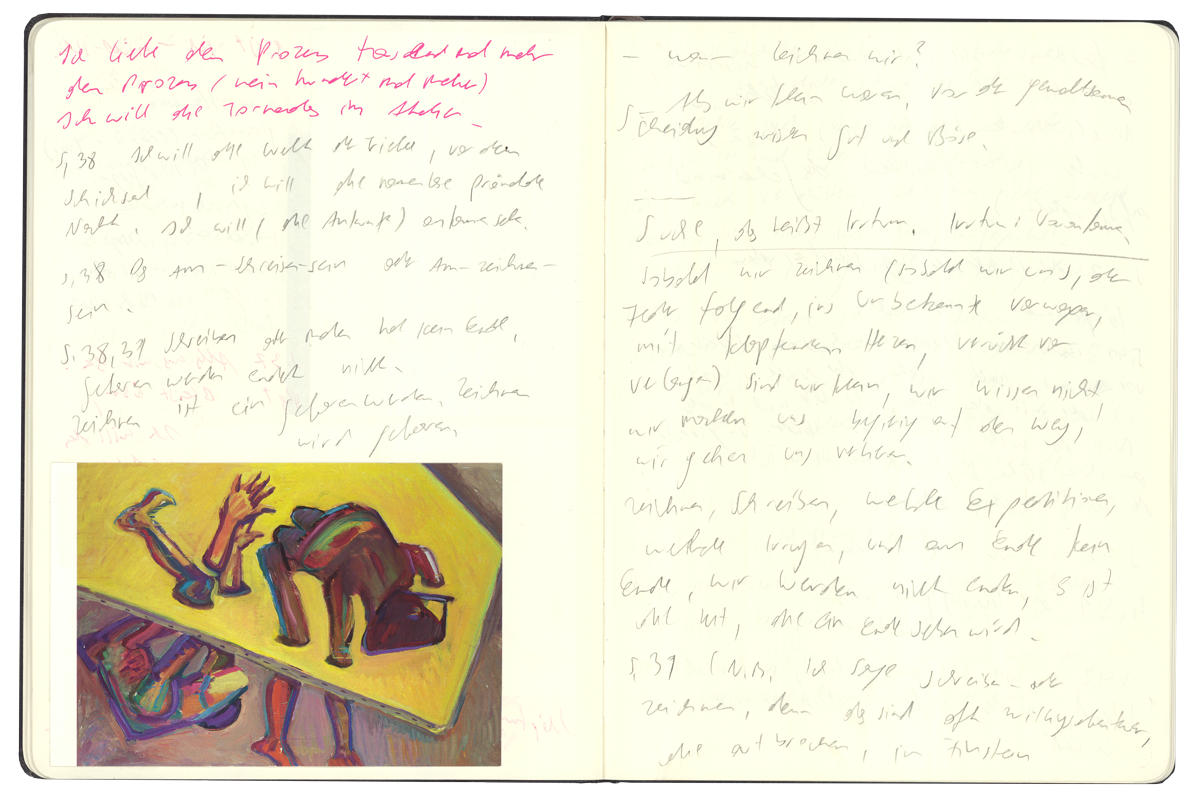 Ich liebe den Prozess tausend mal mehr
den Prozess (nein hundert mal mehr)
Ich will die Tornados im Atelier.
S. 38 Ich will die Welt der Triebe, vor dem
Schicksal, ich will die namenlose pränatale
Nacht. Ich will (die Ankunft) ankommen sehen.
S. 38 Das Am-Schreiben-sein oder Am-zeichnen-
sein.
S. 38, 39 Schreiben oder malen hat kein Ende,
geboren werden endet nicht.
Zeichnen ist ein Geborenwerden. Zeichnen
wird geboren.
– wann zeichnen wir?
Als wir klein waren, vor der gewaltsamen
Scheidung zwischen Gut und Böse.
Suche, das heißt Irrtum. Irrtum:
sobald wir zeichnen (sobald wir uns, der
Feder folgend, ins Unbekannte vorwagen,
mit klopfendem Herzen, verrückt vor
Verlangen) sind wir klein, wir wissen nicht,
wir machen uns begierig auf den Weg,
wir gehen uns verlieren.
Zeichnen, Schreiben, welche Expeditionen,
welche Irrungen, und am Ende kein
Ende, wir werden nicht enden, es ist
die Zeit, die ein Ende sehen wird.
S. 39 (N.B. Ich sage schreiben oder
zeichnen, denn das sind oft Zwillingsabenteuer,
die aufbrechen, im Finstern